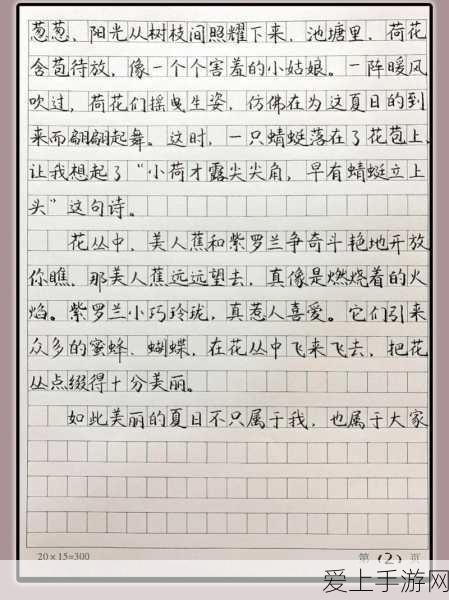 葱葱、阳光从树枝间照耀下来，池塘里，荷花
含苞待放，像一个个害羞的小姑娘。一阵暖风
吹过，荷花们摇曳生姿，仿佛在为这夏日的到
来而翩翩起舞。这时，一只蜻蜓落在了花苞上，
让我想起了“小荷才露尖尖角，早有蜻蜓立上
头”这句诗。
花丛中，美人蕉和紫罗兰争奇斗艳地开放
你瞧，那美人蕉远远望去，真像是燃烧着的火
焰。紫罗兰小巧玲珑，真惹人喜爱。它们引来
众多的蜜蜂、蝴蝶，在花丛中飞来飞去，把花
丛点缀得十分美丽。
如此美丽的夏日不只属于我，也属于大家
20×15=300
第（2）页
爱上手游网